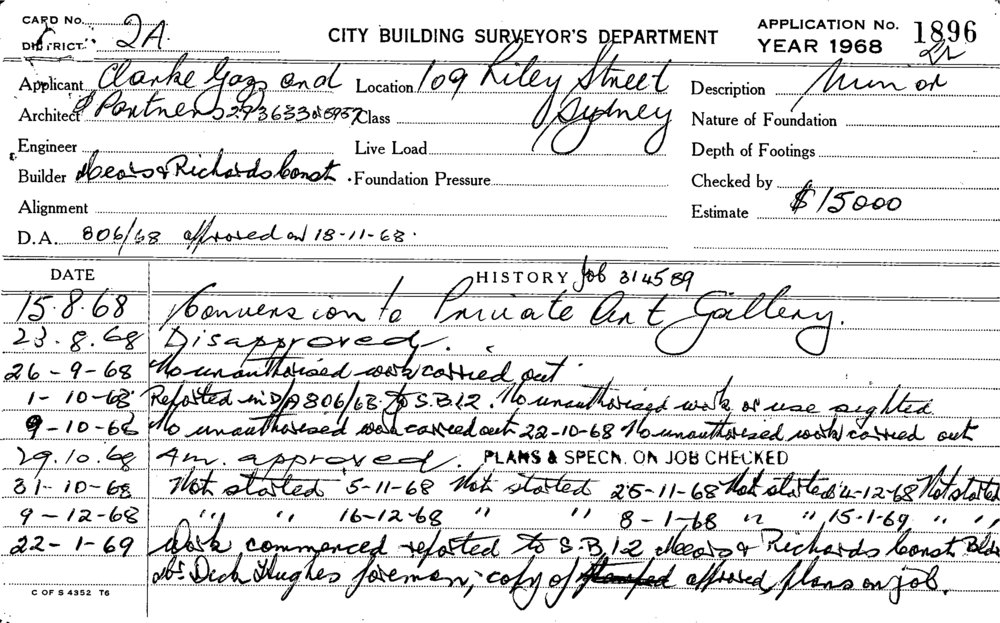 CARD No.
DISTRICT. 2A
CITY BUILDING SURVEYOR'S DEPARTMENT
APPLICATION No. 1896
YEAR 1968
Applicant Clarke Gaz and Location 109 Riley Street Description Minor
Architect & Partners 293633 Class Sydney Nature of Foundation
Engineer Live Load Depth of Footings
Builder Mears & Richards Const. Foundation Pressure Checked by
Alignment Estimate $15000
D.A. 806/68 approved on 18-11-68.
DATE HISTORY Job 314589
15.8.68 Conversion to Private Art Gallery.
23.8.68 Disapproved.
26-9-68 No unauthorised work carried out
1-10-68 Reported in D/A 806/68. to S.B.12. No unauthorised work or use sighted
9-10-68 No unauthorised work carried out 22-10-68 No unauthorised work carried out
29.10.68 Am. approved. PLANS & SPECN. ON JOB CHECKED
31-10-68 Not started 5-11-68 Not started 25-11-68 Not started 4-12-68 Not started
9-12-68 " " 16-12-68 " " 8-1-68 " " 15-1-69 " "
22-1-69 Work commenced reported to S.B.12 Mears & Richards Const Bldr
Mr. Dick Hughes foreman, copy of stamped approved plans on job.
C OF S 4352 T6